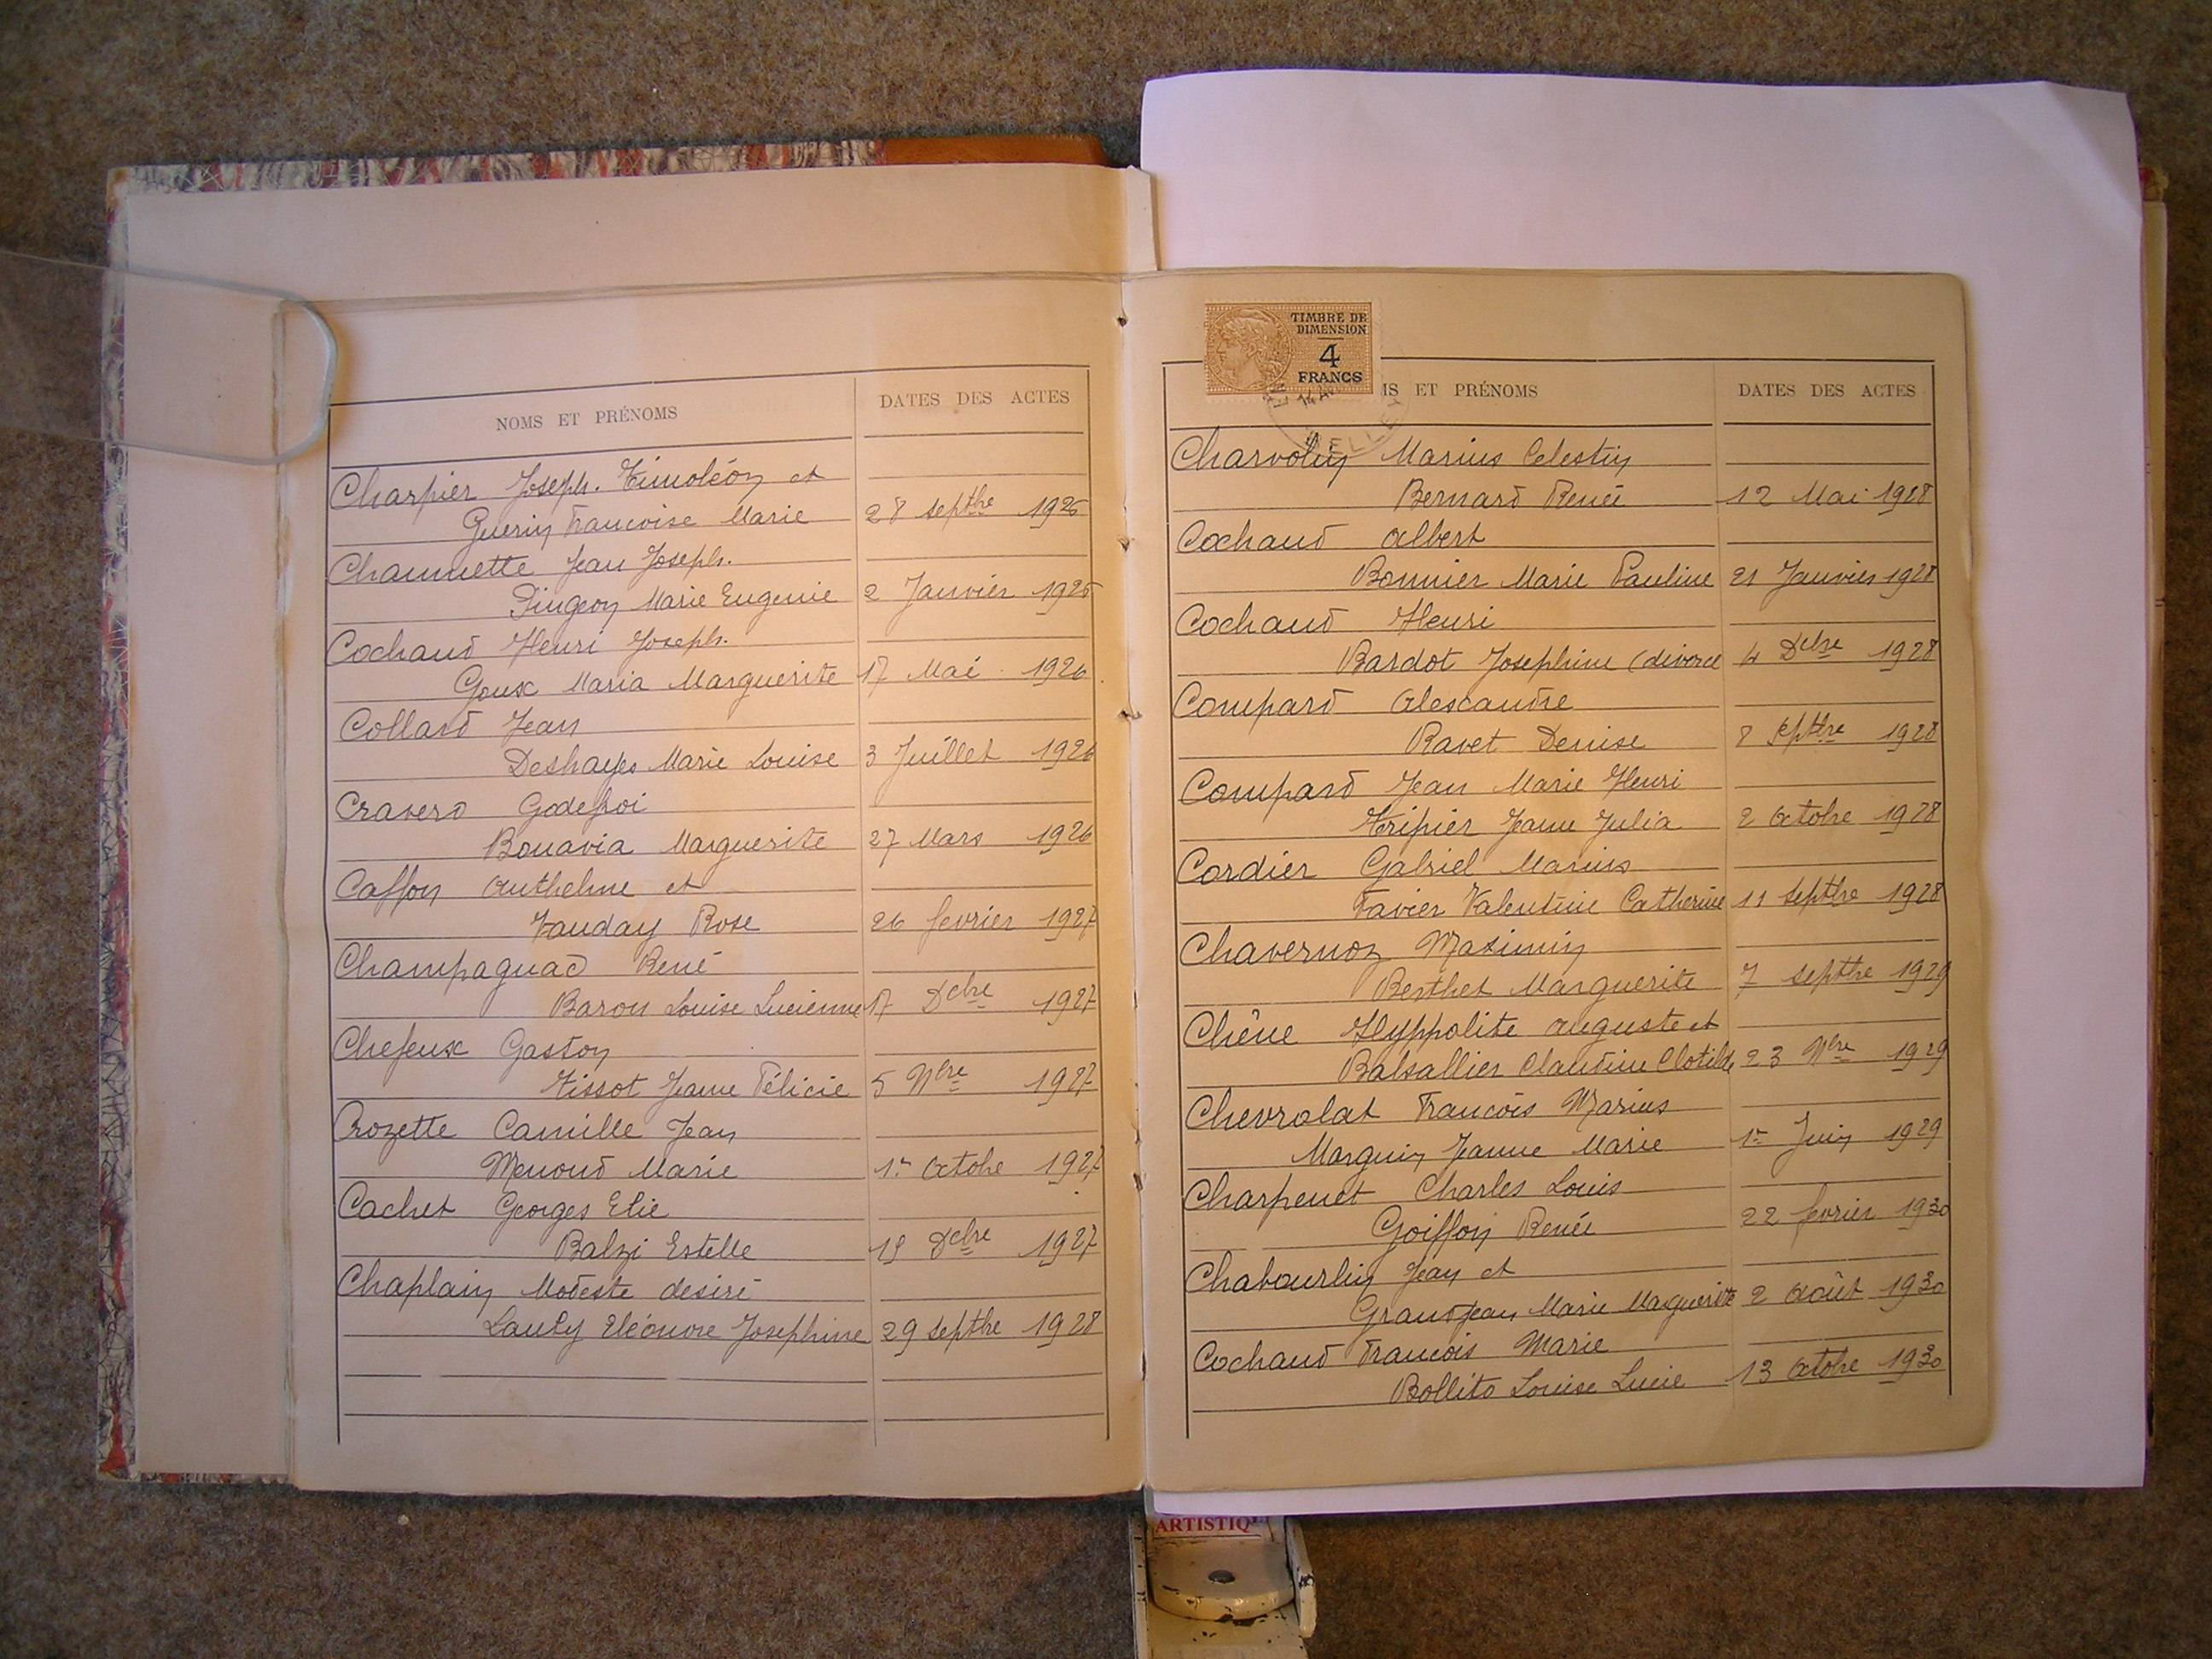 NOMS ET PRÉNOMS DATES DES ACTES
Charpier Joseph. Timoléon et
Guerin Francoise Marie 28 septbre 1925
Chaumette Jean Joseph.
Pingeon Marie Eugenie 2 Janvier 1925
Cochaud Henri Joseph.
Goux Maria Marguerite 17 Mai 1926
Collard Jean
Deshayes Marie Louise 3 Juillet 1926
Cravero Godefroi
Bonavia Marguerite 27 Mars 1926
Caffon Anthelme et
Vauday Rose 26 fevrier 1927
Champagnac René
Baron Louise Lucienne 17 Dcbre 1927
Chefeux Gaston
Tissot Jeanne Félicie 5 Nbre 1927
Crozette Camille Jean
Menoud Marie 1er Octobre 1927
Cachet Georges Elie
Balzi Estelle 19 Dcbre 1927
Chaplain Modeste desiré
Lauty Eléonore Josephine 29 septbre 1928
TIMBRE DE
DIMENSION
4
FRANCS
MS ET PRÉNOMS DATES DES ACTES
Charvolin Marius Celestin
Bernard Renée 12 Mai 1928
Cochaud Albert
Bonnier Marie Pauline 21 Janvier 1928
Cochaud Henri
Bardot Josephine (divorce 4 Dcbre 1928
Compard Alexandre
Ravet Denise 8 septbre 1928
Compard Jean Marie Henri
Tripier Jeanne Julia 2 Octobre 1928
Cordier Gabriel Marius
Favier Valentine Catherine 11 septbre 1928
Chavernoz Maximin
Berthet Marguerite 7 septbre 1929
Chêne Hyppolite Auguste et
Balsallier Claudine Clotilde 23 Nbre 1929
Chevrolat Francois Marius
Marguin Jeanne Marie 1er Juin 1929
Charpenet Charles Louis
Goiffon Renée 22 fevrier 1930
Chabourlin Jean et
Grandjean Marie Marguerite 2 Août 1930
Cochaud Francois Marie
Bollito Louise Lucie 13 Octobre 1930
ARTISTIQ